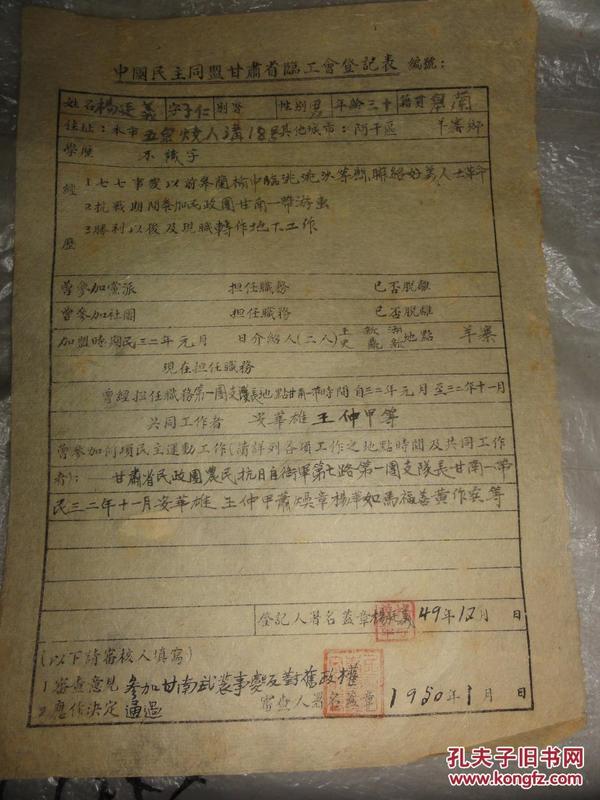 中國民主同盟甘肅省臨工會登記表 編號:
姓名 楊廷義 字 子仁 別号 性別 男 年齡 三十 籍貫 皋蘭
住址:本市 五泉 燒人溝18号 其他城市:阿干區 羊寨鄉
學歷 不識字
經歷 1 七七事变以前皋蘭榆中臨洮洮沙等縣聯絡好義人士革命
2 抗戰期間參加民政團甘南一帶游击
3 勝利以後及現職轉作地下工作
曾參加黨派 担任職務 已否脫離
曾參加社團 担任職務 已否脫離
加盟時間 民三二年元月 日 介紹人(二人) 王 史 地點 羊寨
現在担任職務
曾經担任職務 第一團支隊長 地點 甘南一帶 時間 自三二年元月至三二年十一月
共同工作者 安華雄 王仲甲等
曾參加何項民主運動工作(請詳列各項工作之地點時間及共同工作
者): 甘肅省民政團農民抗日自衛軍第七路第一團支隊長甘南一帶
民三二年十一月安華雄 王仲甲蕭煥章楊華如馬福善黄作宾等
登記人署名蓋章 楊廷義 49年12月 日
(以下請審核人填寫)
1 審查意見 參加甘南武裝事變反對舊政權
2 應作決定 通過 審查人署名蓋章 1950年1月 日
孔夫子旧书网
www.kongfz.com